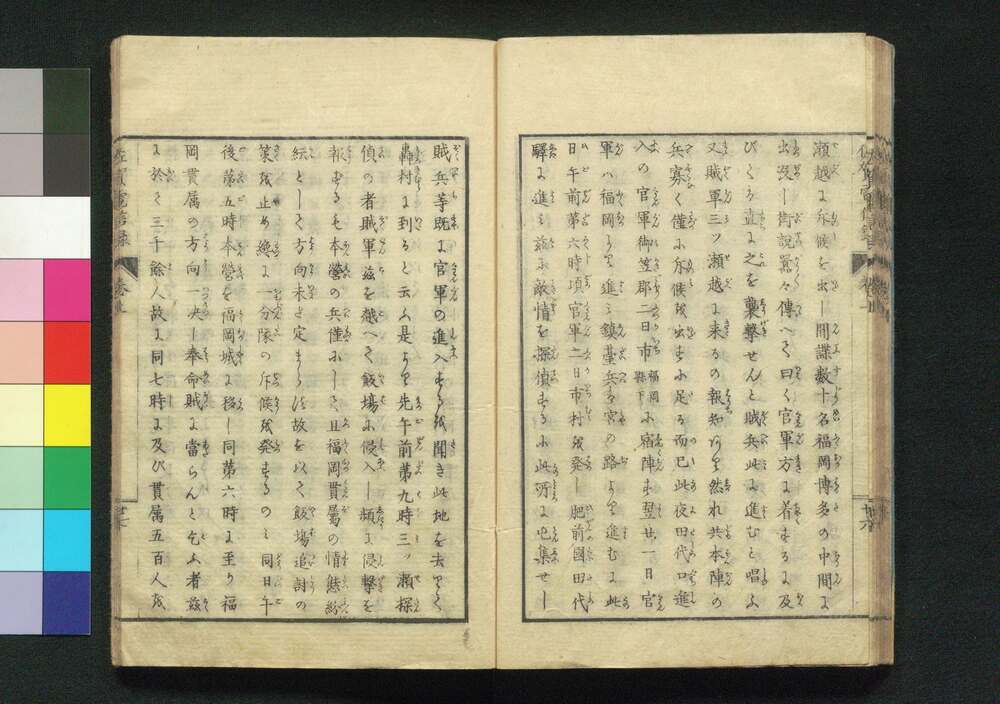 瀬越に斥候を出し間諜数十名福岡博多の中間に
出没し街説囂々傳へて曰く官軍方に着するに及
びてろ直に之を襲撃せんと賊兵此に進むと唱ふ
又賊軍三ツ瀬越に来るの報知あり然れ共本陣の
兵寡く僅に斥候を出すに足る而已此夜田代口進
入の官軍御笠郡二日市福岡縣下に宿陣す翌廿一日官
軍ハ福岡より進ミ鎮臺兵ハ宮の路より進むに此
日午前第六時頃官軍二日市村を発し肥前國田代
驛に進ミ茲に敵情を探偵するに此所に屯集せし
賊兵等既に官軍の進入するを聞き此地を去りて
轟村に到ると云ふ是より先午前第九時三ツ瀬探
偵の者賊軍茲を越へて飯場に侵入し頻に侵撃を
報するも本營の兵僅にして且福岡貫属の情態紛
紜として方向未と定まらず故を以て飯場追討の
策を止め纔に一分隊の斥候を発するのミ同日午
後第五時本營を福岡城に移し同第六時に至り福
岡貫属の方向一決し奉命賊に當らんと乞ふ者茲
に於て三千餘人故に同七時に及び貫属五百人を
佐賀電信録
卷上